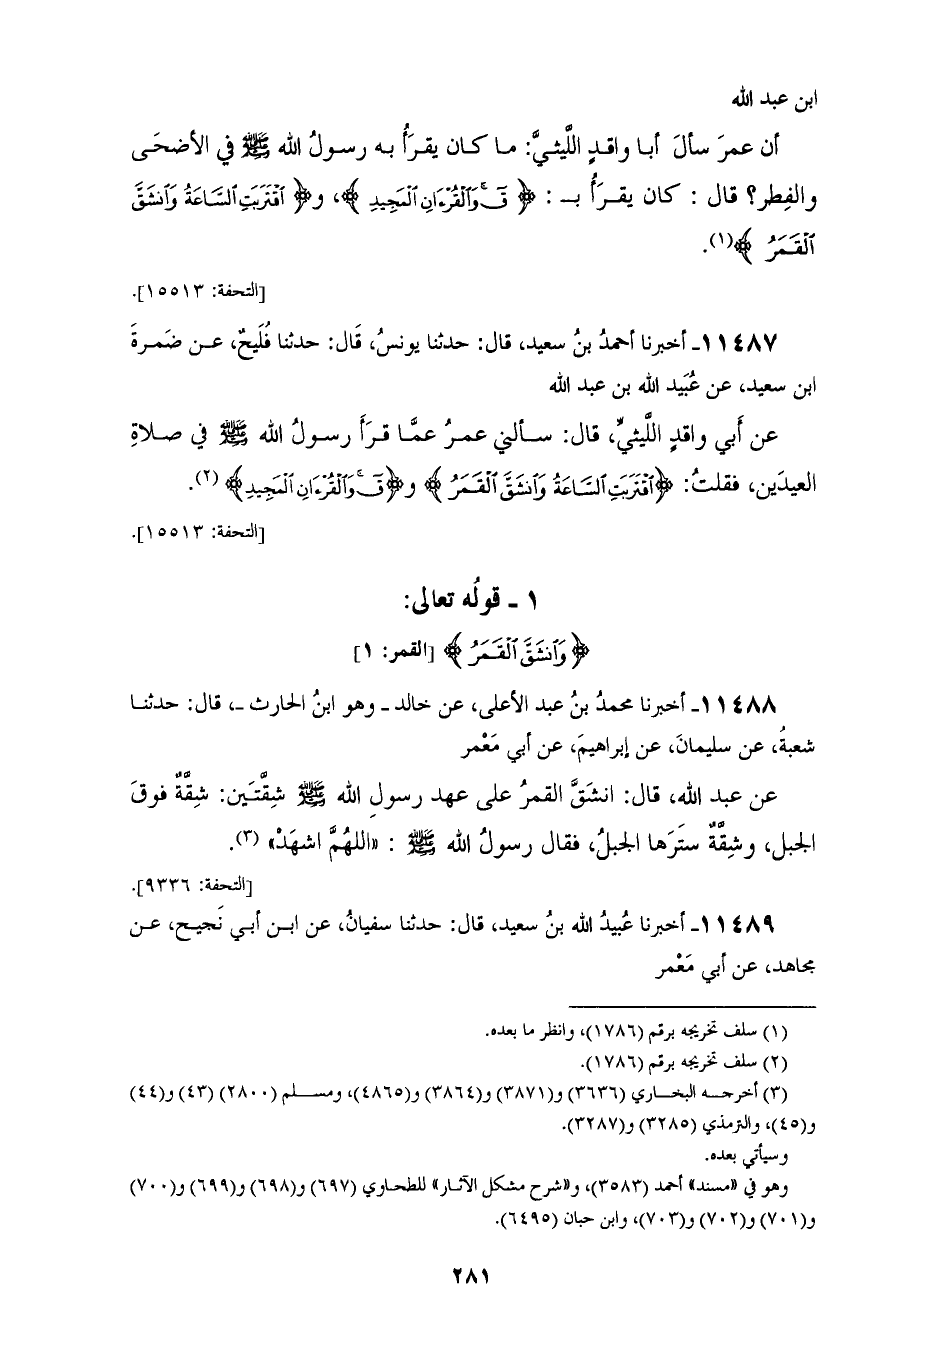 ابن عبد الله
أن عمرَ سألَ أبا واقدٍ اللَّيثيَّ: ما كان يقرَأُ به رسولُ الله ﷺ في الأضحَى
والفِطر؟ قال : كان يقرَأُ بـ : ﴿ قٓۚ وَٱلۡقُرۡءَانِ ٱلۡمَجِيدِ ﴾، و﴿ ٱقۡتَرَبَتِ ٱلسَّاعَةُ وَٱنشَقَّ
ٱلۡقَمَرُ ﴾(١).
[التحفة: ١٥٥١٣].
١١٤٨٧ـ أخبرنا أحمدُ بنُ سعيد، قال: حدثنا يونسُ، قَال: حدثنا فُلَيحٌ، عـن ضَمـرةَ
ابن سعيد، عن عُبَيد الله بن عبد الله
عن أبي واقدٍ اللَّيثيِّ، قال: سـألني عمـرُ عمَّـا قـرَأَ رسـولُ الله ﷺ في صـلاةِ
العيدَين، فقلتُ: ﴿ٱقۡتَرَبَتِ ٱلسَّاعَةُ وَٱنشَقَّ ٱلۡقَمَرُ ﴾ و﴿قٓۚ وَٱلۡقُرۡءَانِ ٱلۡمَجِيدِ﴾ (٢).
[التحفة: ١٥٥١٣].
١ ـ قولُه تعالى:
﴿ وَٱنشَقَّ ٱلۡقَمَرُ ﴾ [القمر: ١]
١١٤٨٨ـ أخبرنا محمدُ بنُ عبد الأعلى، عن خالد ـ وهو ابنُ الحارث ـ، قال: حدثنـا
شعبةُ، عن سليمانَ، عن إبراهيمَ، عن أبي مَعْمر
عن عبد الله، قال: انشَقَّ القمرُ على عهد رسولِ الله ﷺ شِقَّتَين: شِقَّةٌ فوقَ
الجبل، وشِقَّةٌ ستَرَها الجبلُ، فقال رسولُ الله ﷺ : «اللهُمَّ اشهَدْ» (٣).
[التحفة: ٩٣٣٦].
١١٤٨٩ـ أخبرنا عُبيدُ الله بنُ سعيد، قال: حدثنا سفيانُ، عن ابـن أبـي نَجيـح، عـن
مجاهد، عن أبي مَعْمر
(١) سلف تخريجه برقم (١٧٨٦)، وانظر ما بعده.
(٢) سلف تخريجه برقم (١٧٨٦).
(٣) أخرجـه البخـاري (٣٦٣٦) و(٣٨٧١) و(٣٨٦٤) و(٤٨٦٥)، ومسـلم (٢٨٠٠) (٤٣) و(٤٤)
و(٤٥)، والترمذي (٣٢٨٥) و(٣٢٨٧).
وسيأتي بعده.
وهو في «مسند» أحمد (٣٥٨٣)، و«شرح مشكل الآثار» للطحاوي (٦٩٧) و(٦٩٨) و(٦٩٩) و(٧٠٠)
و(٧٠١) و(٧٠٢) و(٧٠٣)، وابن حبان (٦٤٩٥).
٢٨١